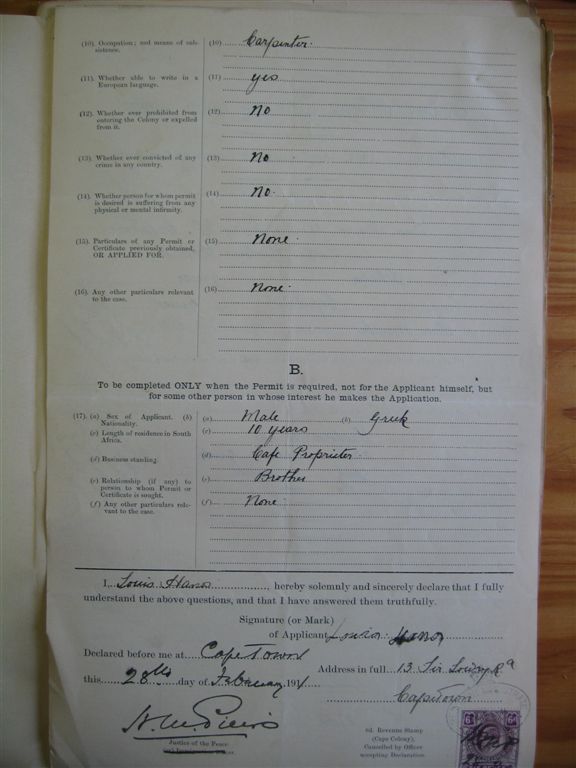 (10). Occupation; and means of sub-
sistence.
(10) Carpenter.
(11). Whether able to write in a
European language.
(11) yes
(12). Whether ever prohibited from
entering the Colony or expelled
from it.
(12) No
(13). Whether ever convicted of any
crime in any country.
(13) No
(14). Whether person for whom permit
is desired is suffering from any
physical or mental infirmity.
(14) No.
(15). Particulars of any Permit or
Certificate previously obtained,
OR APPLIED FOR.
(15) None.
(16). Any other particulars relevant
to the case.
(16) None.
B.
To be completed ONLY when the Permit is required, not for the Applicant himself, but
for some other person in whose interest he makes the Application.
(17). (a) Sex of Applicant. (b)
Nationality.
(a) Male (b) Greek
(c) Length of residence in South
Africa.
(c) 10 years
(d) Business standing.
(d) Cafe Proprieter.
(e) Relationship (if any) to
person to whom Permit or
Certificate is sought.
(e) Brother
(f) Any other particulars rele-
vant to the case.
(f) None.
I, Louis, hereby solemnly and sincerely declare that I fully
understand the above questions, and that I have answered them truthfully.
Signature (or Mark)
of Applicant
Declared before me at Cape Town
Address in full 13 Sir Lowry Rd
this 28th day of February 191
Capetown
Justice of the Peace
6d. Revenue Stamp
(Cape Colony),
Cancelled by Officer
accepting Declaration.
6d 6d